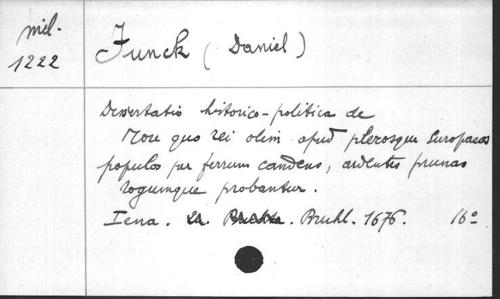 mil.
1222
Junck (Daniel)
Dissertatio historico-politica de
More quo rei olim apud plerosque Europaeos
populos per ferrum candens, ardentes prunas
rogumque probantur.
Iena. Bruhl. 1676. 16º